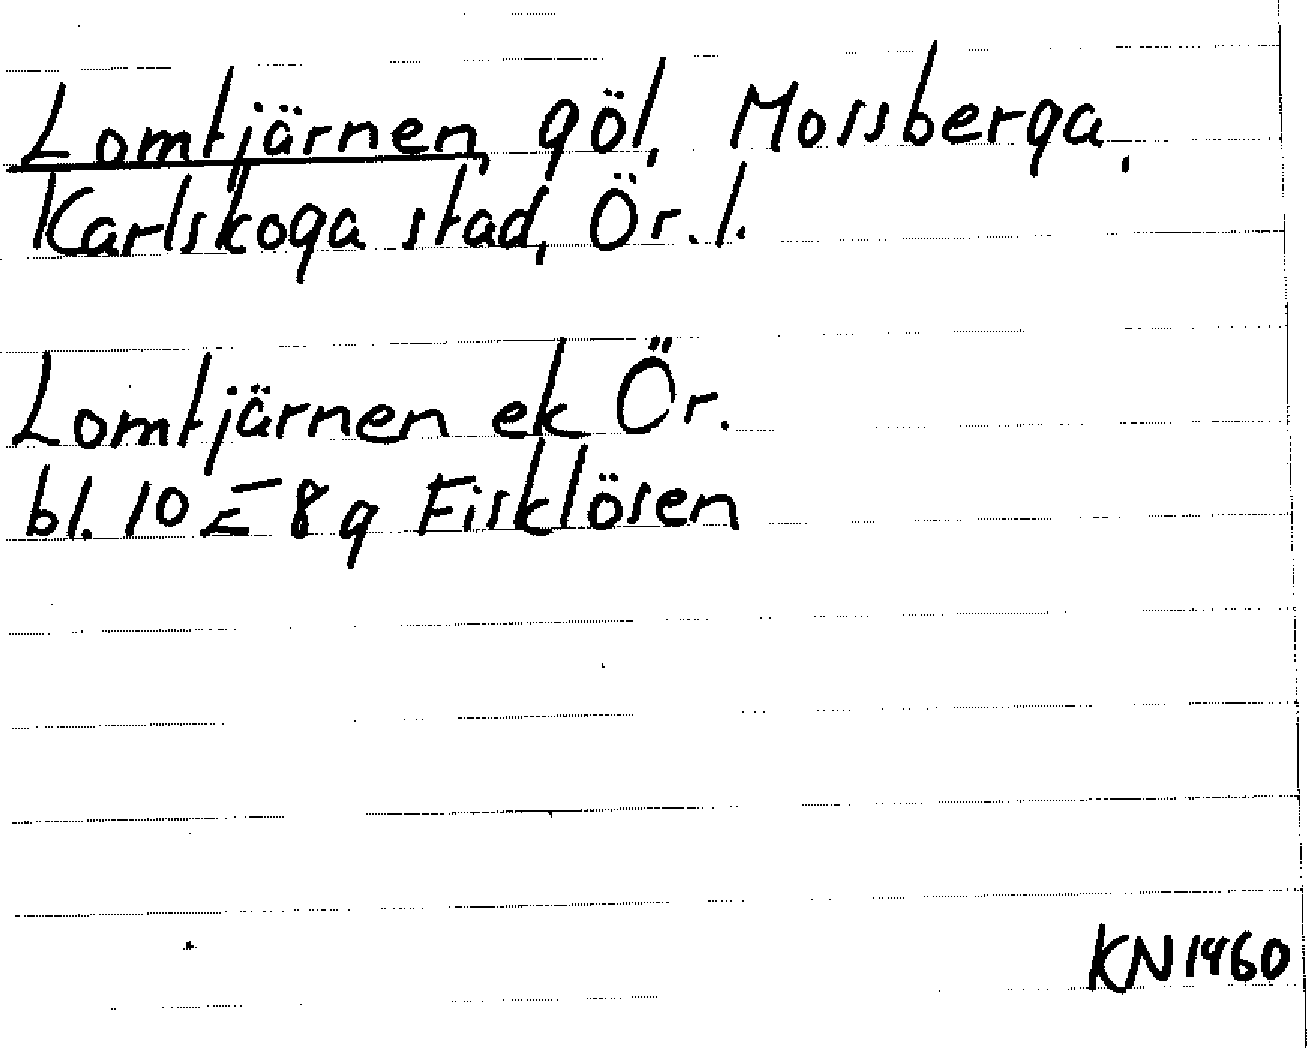 Lomtjärnen, göl, Mossberga,
Karlskoga stad, Ör. l.
Lomtjärnen ek Ör.
bl. 10 E 8 g Fisklösen
KN1460